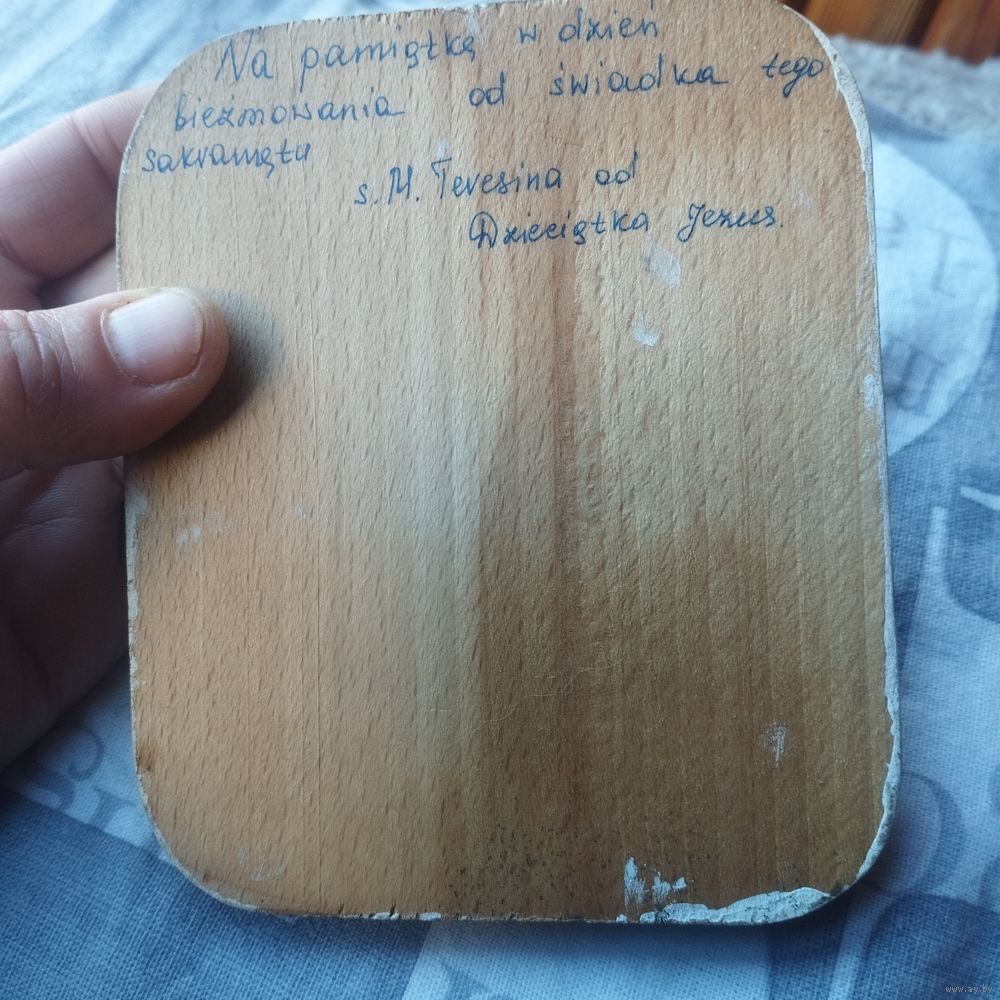 Na pamiątkę w dzień
bieżmowania od świadka tego
sakramętu
s. M. Teresina od
Dzieciątka Jezus.
www.ay.by